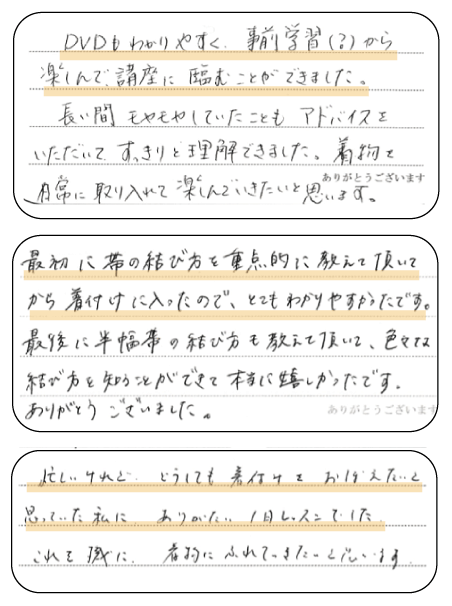 DVDもわかりやすく、事前学習(?)から
楽しんで講座に臨むことができました。
長い間モヤモヤしていたことも アドバイスを
いただいて すっきりと理解できました。着物を
日常に取り入れて楽しんでいきたいと思います。
ありがとうございます
最初に帯の結び方を重点的に教えて頂いて
から着付けに入ったので、とてもわかりやすかったです。
最後に半幅帯の結び方も教えて頂いて、色々な
結び方を知ることができて本当に嬉しかったです。
ありがとうございました。
ありがとうございます
忙しいけれど、どうしても着付けをおぼえたいと
思っていた私に ありがたい 1日レッスンでした
これを機に、着物にふれていきたいと思います